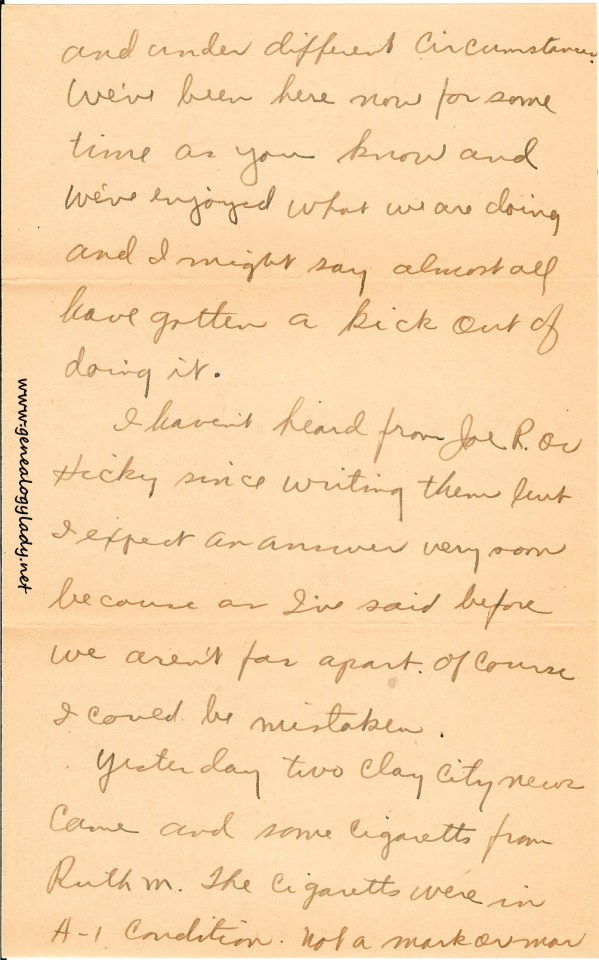 and under different circumstances.
We've been here now for some
time as you know and
We've enjoyed what we are doing
and I might say almost all
have gotten a kick out of
doing it.
I haven't heard from Joe R. or
Hicky since writing them but
I expect an answer very soon
because as I've said before
we aren't far apart. Of course
I could be mistaken.
Yesterday two Clay City news
came and some cigaretts from
Ruth M. The cigaretts were in
A-1 condition. Not a mark or mar
www.genealogylady.net